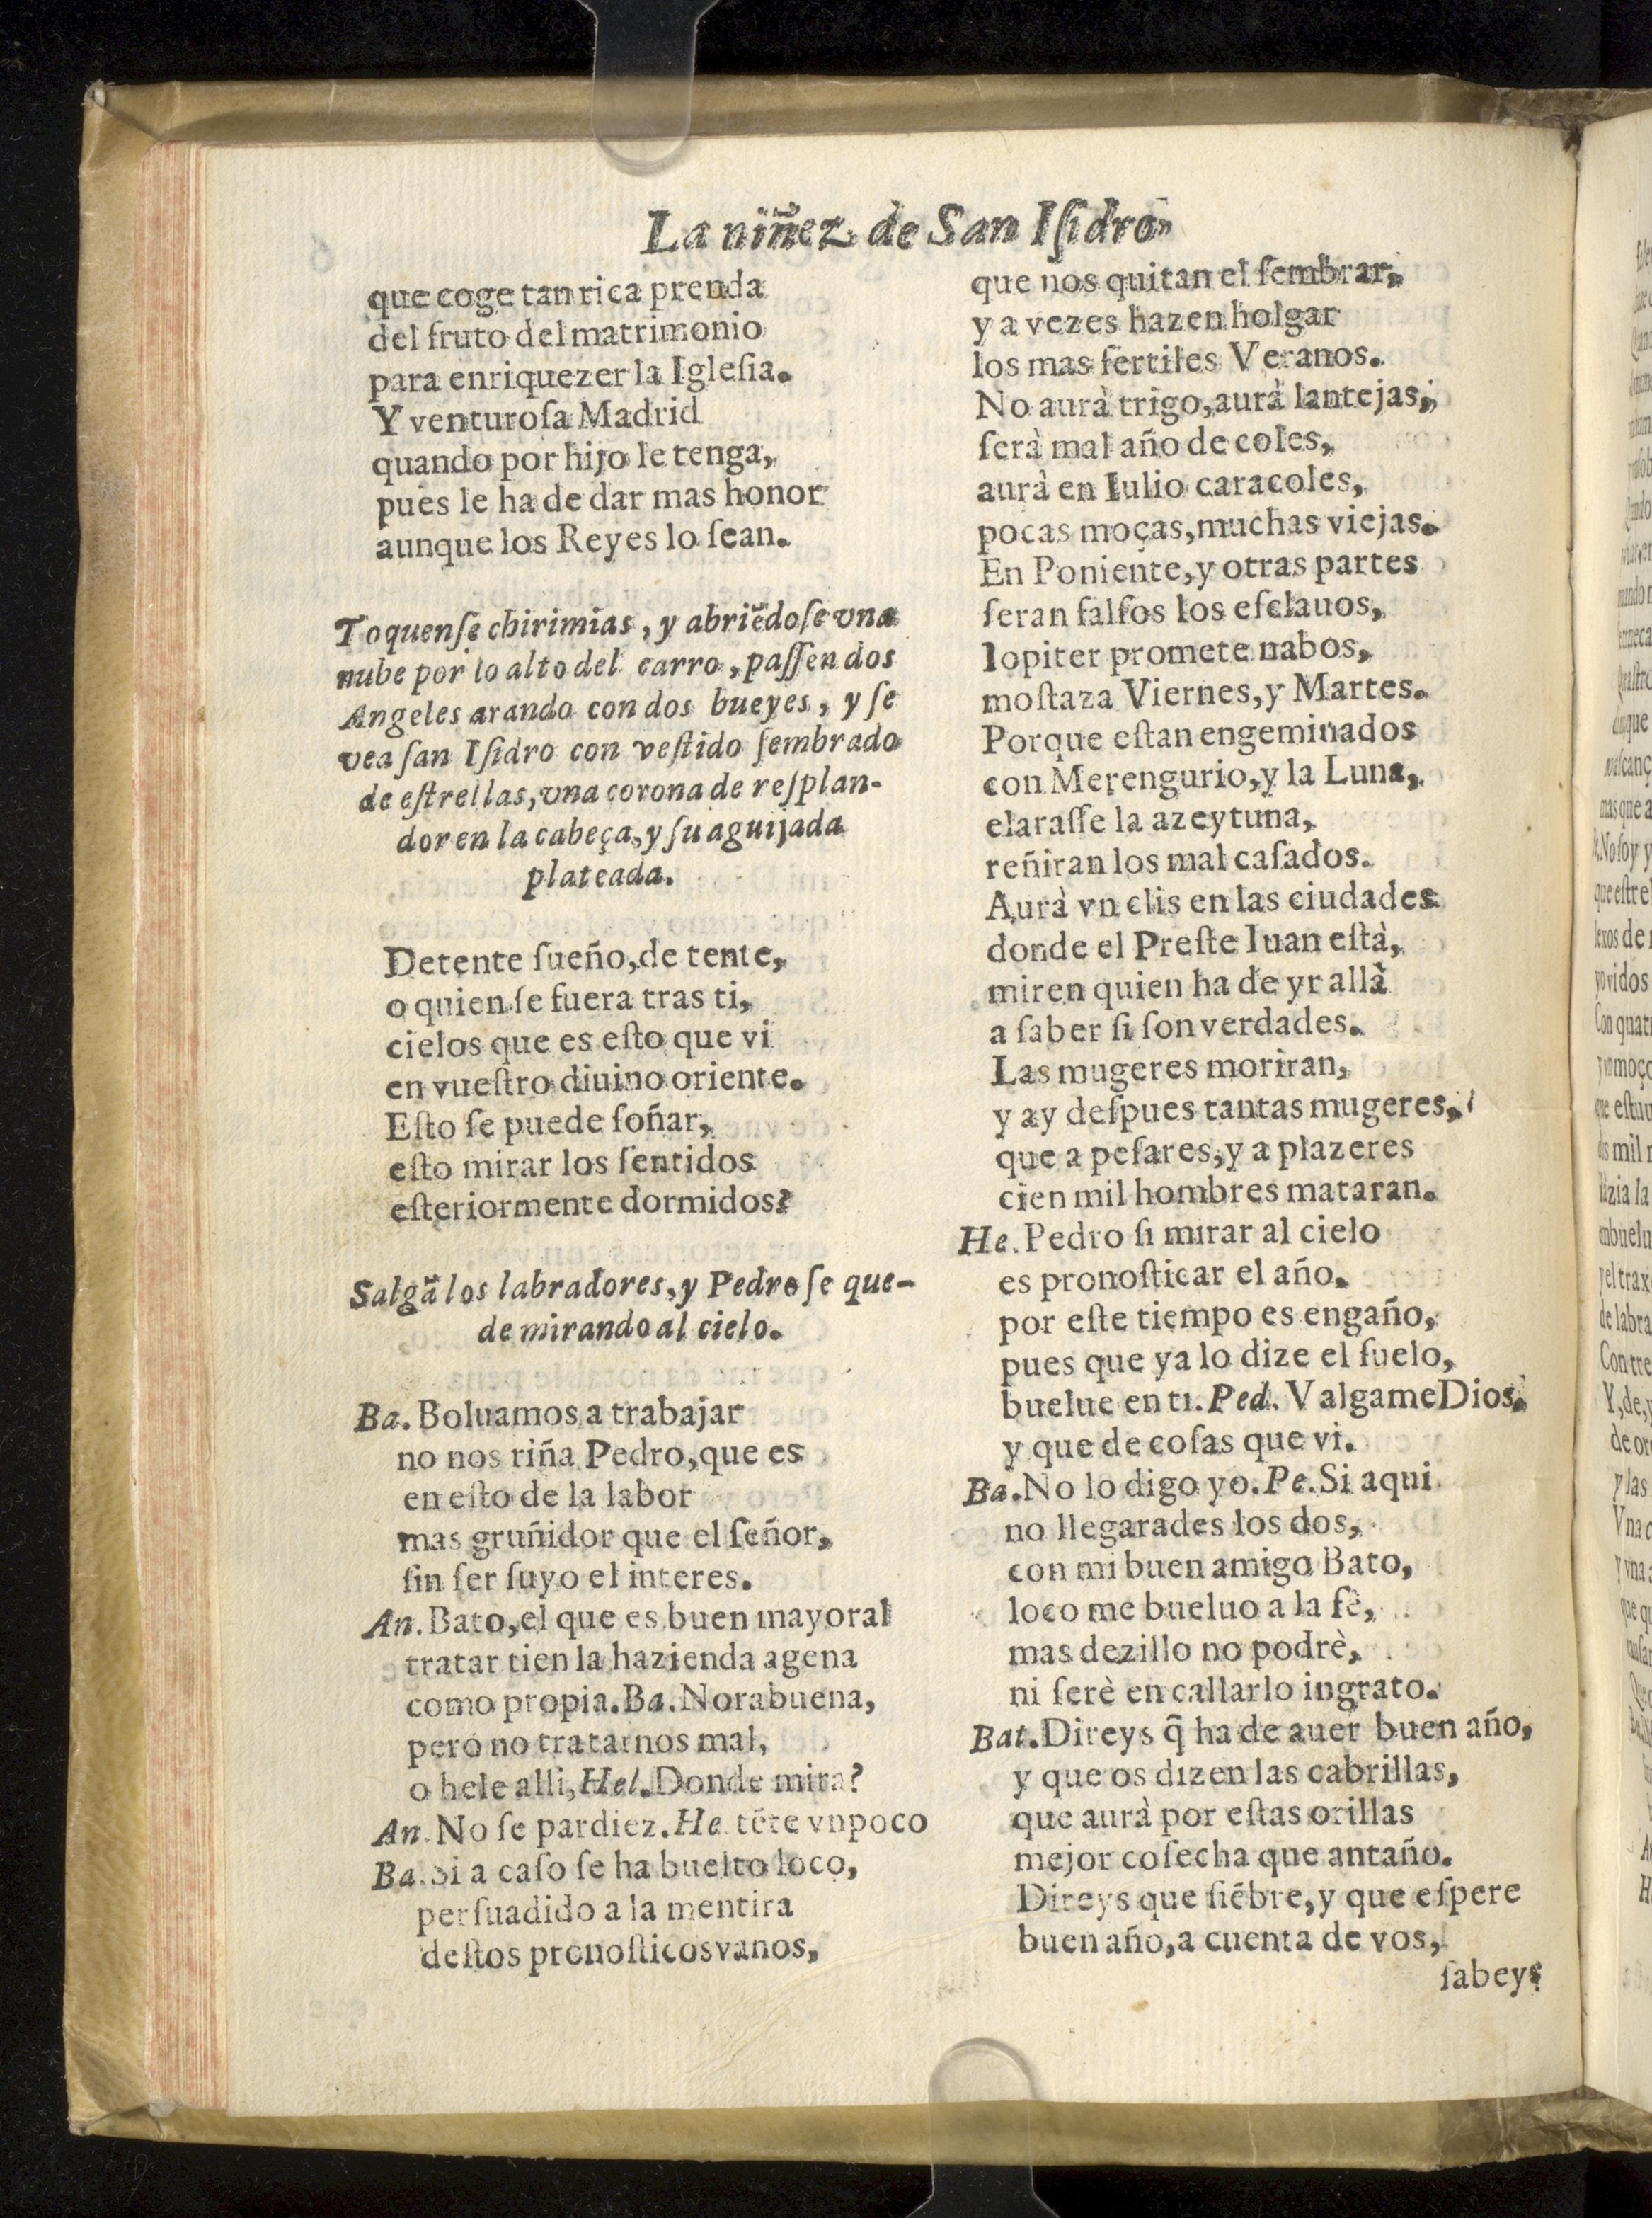 La niñez de San Iſidro
que coge tan rica prenda
del fruto del matrimonio
para enriquezer la Igleſia.
Y venturoſa Madrid
quando por hijo le tenga,
pues le ha de dar mas honor
aunque los Reyes lo ſean.
Toquenſe chirimias, y abriẽdoſe vna
nube por lo alto del carro, paſſen dos
Angeles arando con dos bueyes, y ſe
vea ſan Iſidro con veſtido ſembrado
de eſtrellas, vna corona de reſplan-
dor en la cabeça, y ſu aguijada
plateada.
Detente ſueño, de tente,
o quien ſe fuera tras ti,
cielos que es eſto que vi
en vueſtro diuino oriente.
Eſto ſe puede ſoñar,
eſto mirar los ſentidos
eſteriormente dormidos?
Salgã los labradores, y Pedro ſe que-
de mirando al cielo.
Ba. Boluamos a trabajar
no nos riña Pedro, que es
en eſto de la labor
mas gruñidor que el ſeñor,
ſin ſer ſuyo el interes.
An. Bato, el que es buen mayoral
tratar tien la hazienda agena
como propia. Ba. Norabuena,
pero no tratarnos mal,
o hele alli, Hel. Donde mira?
An. No ſe pardiez. He tẽte vn poco
Ba. Si a caſo ſe ha buelto loco,
perſuadido a la mentira
deſtos pronoſticos vanos,
que nos quitan el ſembrar,
y a vezes hazen holgar
los mas fertiles Veranos.
No aurà trigo, aurà lantejas,
ſerà mal año de coles,
aurà en Iulio caracoles,
pocas moças, muchas viejas.
En Poniente, y otras partes
ſeran falſos los eſclauos,
Iopiter promete nabos,
moſtaza Viernes, y Martes.
Porque eſtan engeminados
con Merengurio, y la Luna,
elaraſſe la azeytuna,
reñiran los mal caſados.
Aurà vn clis en las ciudades
donde el Preſte Iuan eſtà,
miren quien ha de yr allà
a ſaber ſi ſon verdades.
Las mugeres moriran,
y ay deſpues tantas mugeres,
que a peſares, y a plazeres
cien mil hombres mataran.
He. Pedro ſi mirar al cielo
es pronoſticar el año.
por eſte tiempo es engaño,
pues que ya lo dize el ſuelo,
buelue en ti. Ped. Valgame Dios,
y que de coſas que vi.
Ba. No lo digo yo. Pe. Si aqui
no llegarades los dos,
con mi buen amigo Bato,
loco me bueluo a la fè,
mas dezillo no podrè,
ni ſerè en callarlo ingrato.
Bat. Direys q̃ ha de auer buen año,
y que os dizen las cabrillas,
que aurà por eſtas orillas
mejor coſecha que antaño.
Direys que ſiẽbre, y que eſpere
buen año, a cuenta de vos,
ſabeys